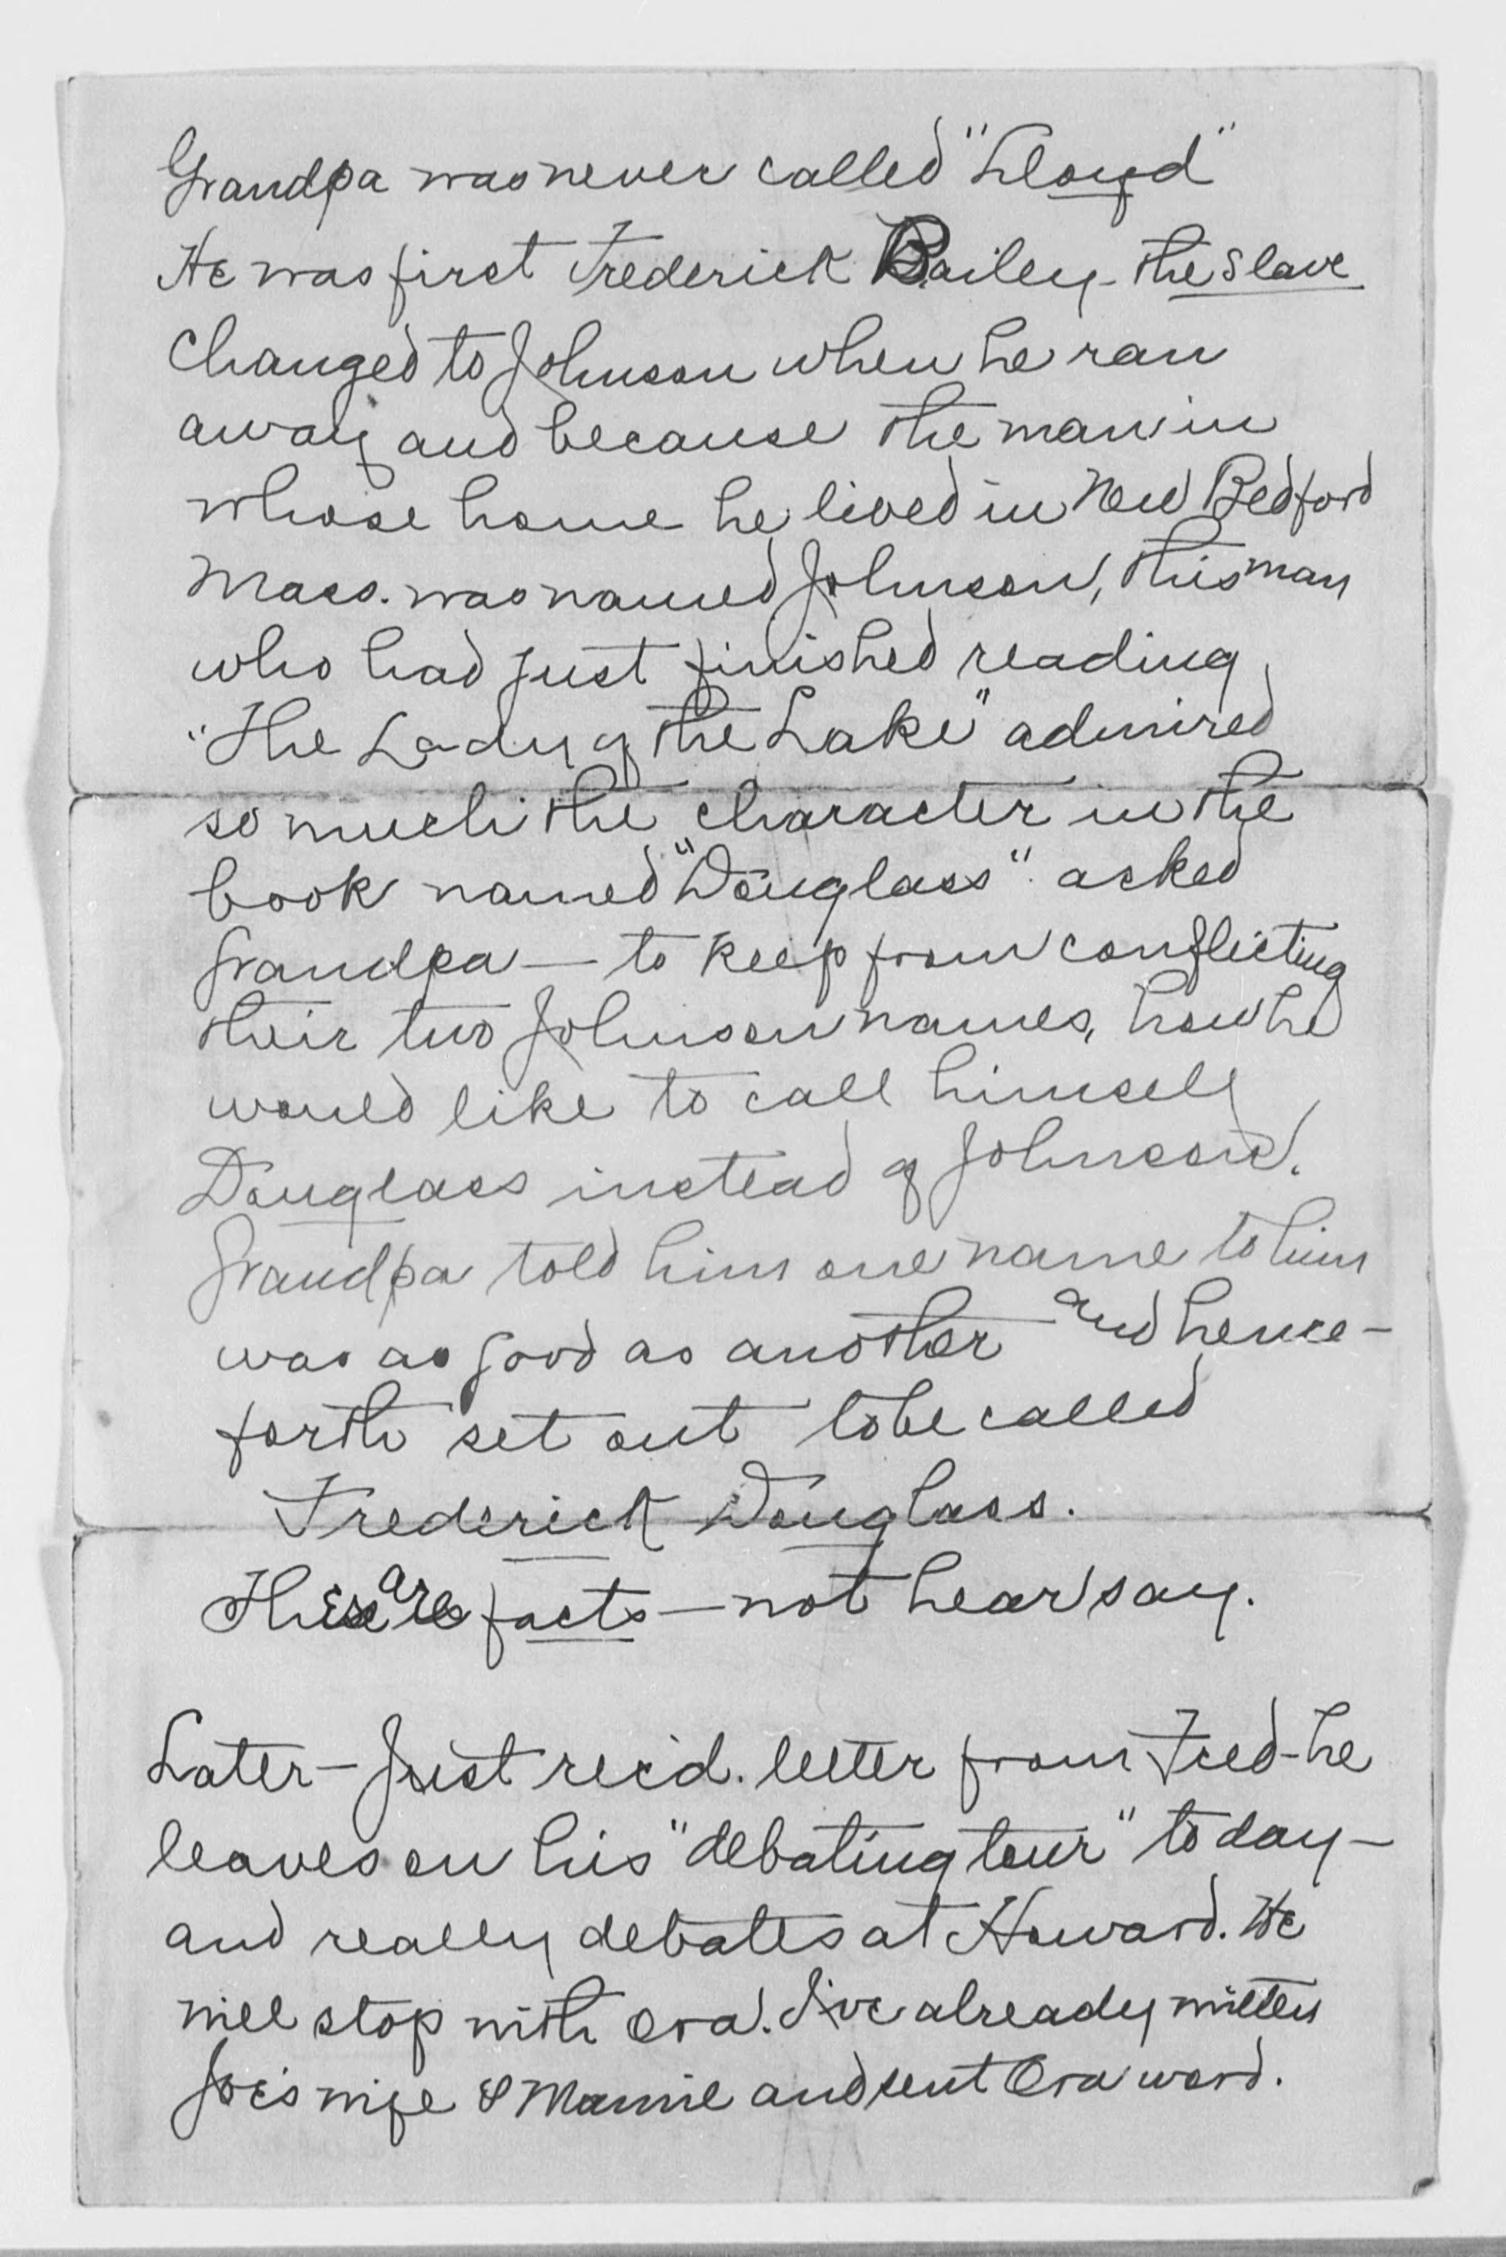 Grandpa was never called "Lloyd"
He was first Frederick Bailey - the slave
changed to Johnson when he ran
away and because the man in
whose home he lived in New Bedford
Mass. was named Johnson, this man
who had just finished reading
"The Lady of the Lake" admired
so much the character in the
book named "Douglass". asked
Grandpa — to keep from conflicting
their two Johnson names, how he
would like to call himself
Douglass instead of Johnson.
Grandpa told him one name to him
was as good as another and hence-
forth set out to be called
Frederick Douglass.
These are facts — not hearsay.
Later - Just rec'd. letter from Fred - he
leaves on his "debating tour" today -
and really debates at Howard. He
will stop with Ora. I've already written
Joe's wife & Mamie and sent Ora word.